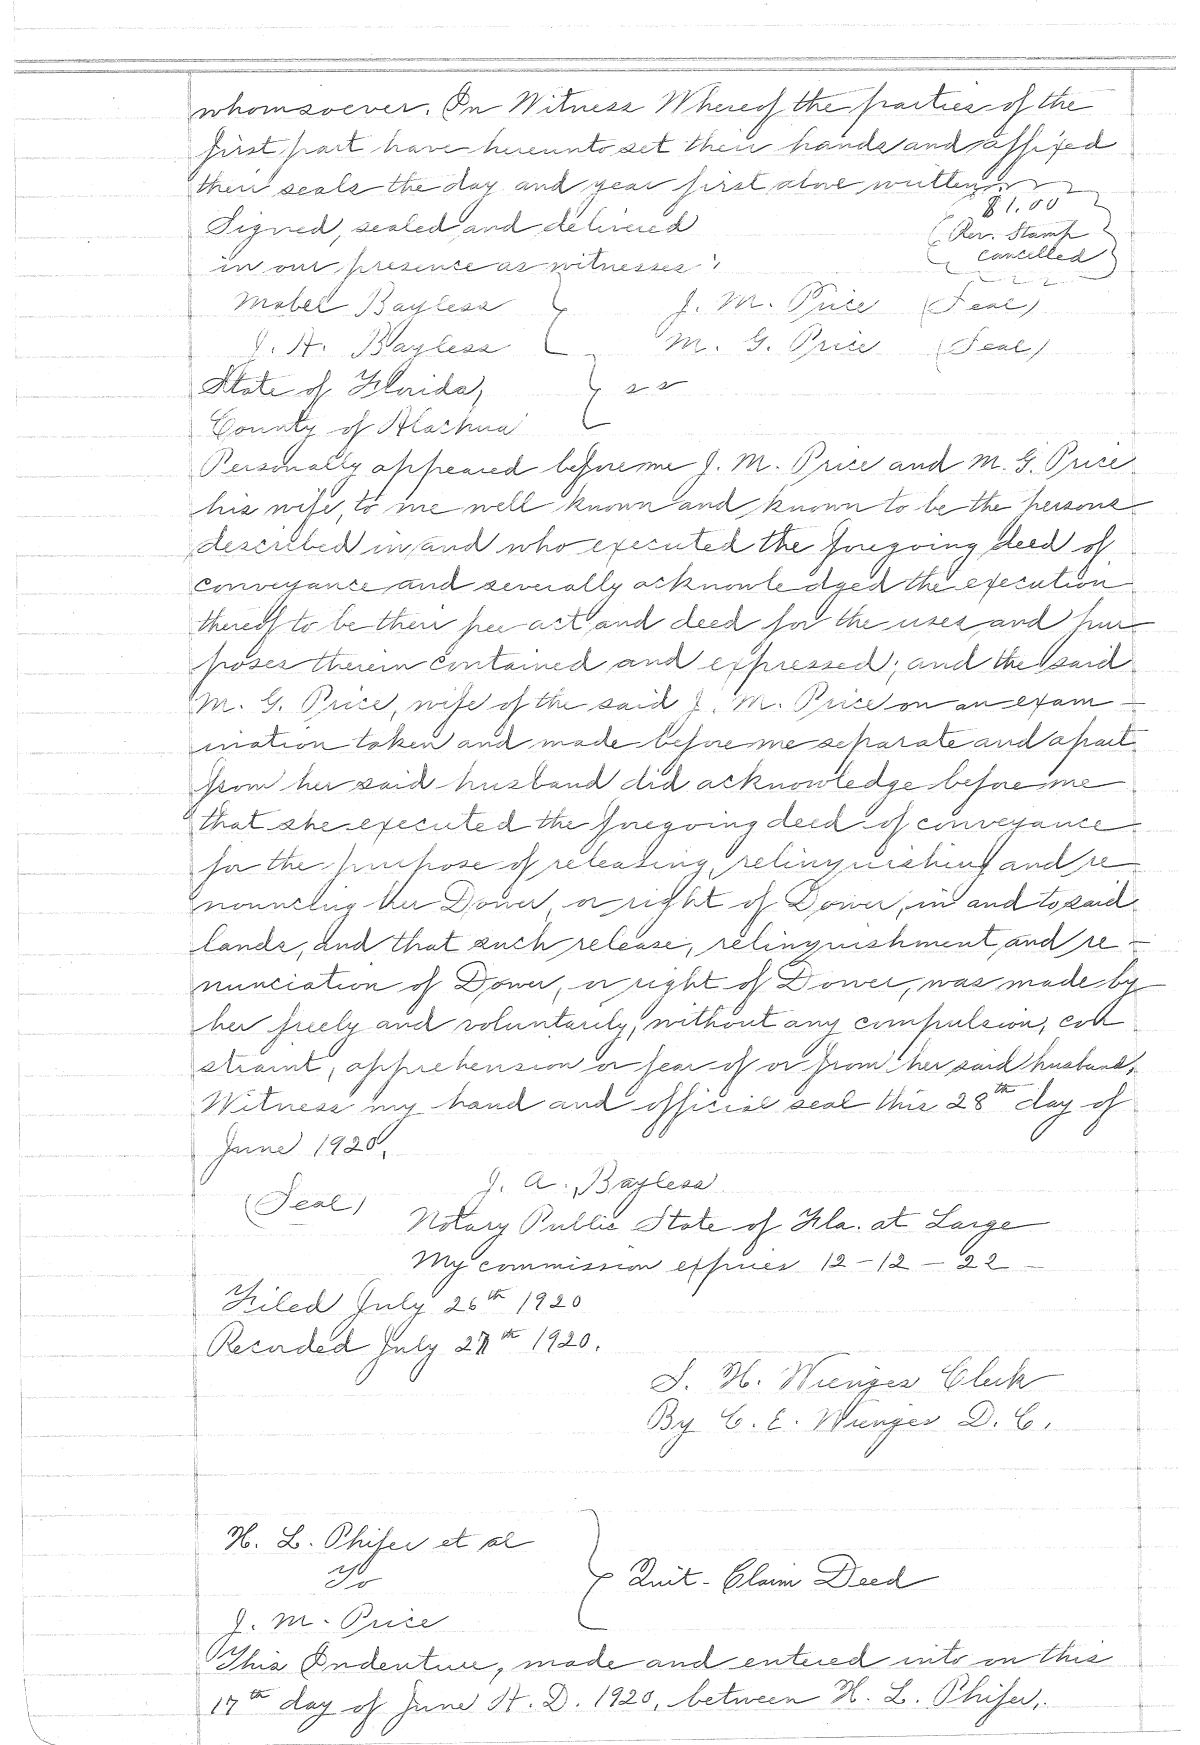 whomsoever. In Witness Whereof the parties of the
first part have hereunto set their hands and affixed
their seals the day and year first above written.
$1.00
Signed, sealed and delivered
(Rev. Stamp
cancelled)
in our presence as witnesses:
Mabel Bayless
J. M. Price (Seal)
J. A. Bayless
M. G. Price (Seal)
State of Florida,
ss
County of Alachua
Personally appeared before me J. M. Price and M. G. Price
his wife, to me well known and known to be the persons
described in and who executed the foregoing deed of
conveyance and severally acknowledged the execution
thereof to be their free act and deed for the uses and pur-
poses therein contained and expressed; and the said
M. G. Price, wife of the said J. M. Price on an exam-
ination taken and made before me separate and apart
from her said husband did acknowledge before me
that she executed the foregoing deed of conveyance
for the purpose of releasing, relinquishing and re-
nouncing her Dower, or right of Dower, in and to said
lands, and that such release, relinquishment and re-
nunciation of Dower, or right of Dower, was made by
her freely and voluntarily, without any compulsion, con
straint, apprehension or fear of or from her said husband.
Witness my hand and official seal this 28th day of
June 1920.
J. A. Bayless
(Seal)
Notary Public State of Fla. at Large
My commission expires 12-12-22
Filed July 26th 1920
Recorded July 27th 1920.
S. H. Wienges Clerk
By C. E. Wienges D. C.
H. L. Phifer et al
To
Quit-Claim Deed
J. M. Price
This Indenture, made and entered into on this
17th day of June A. D. 1920, between H. L. Phifer,